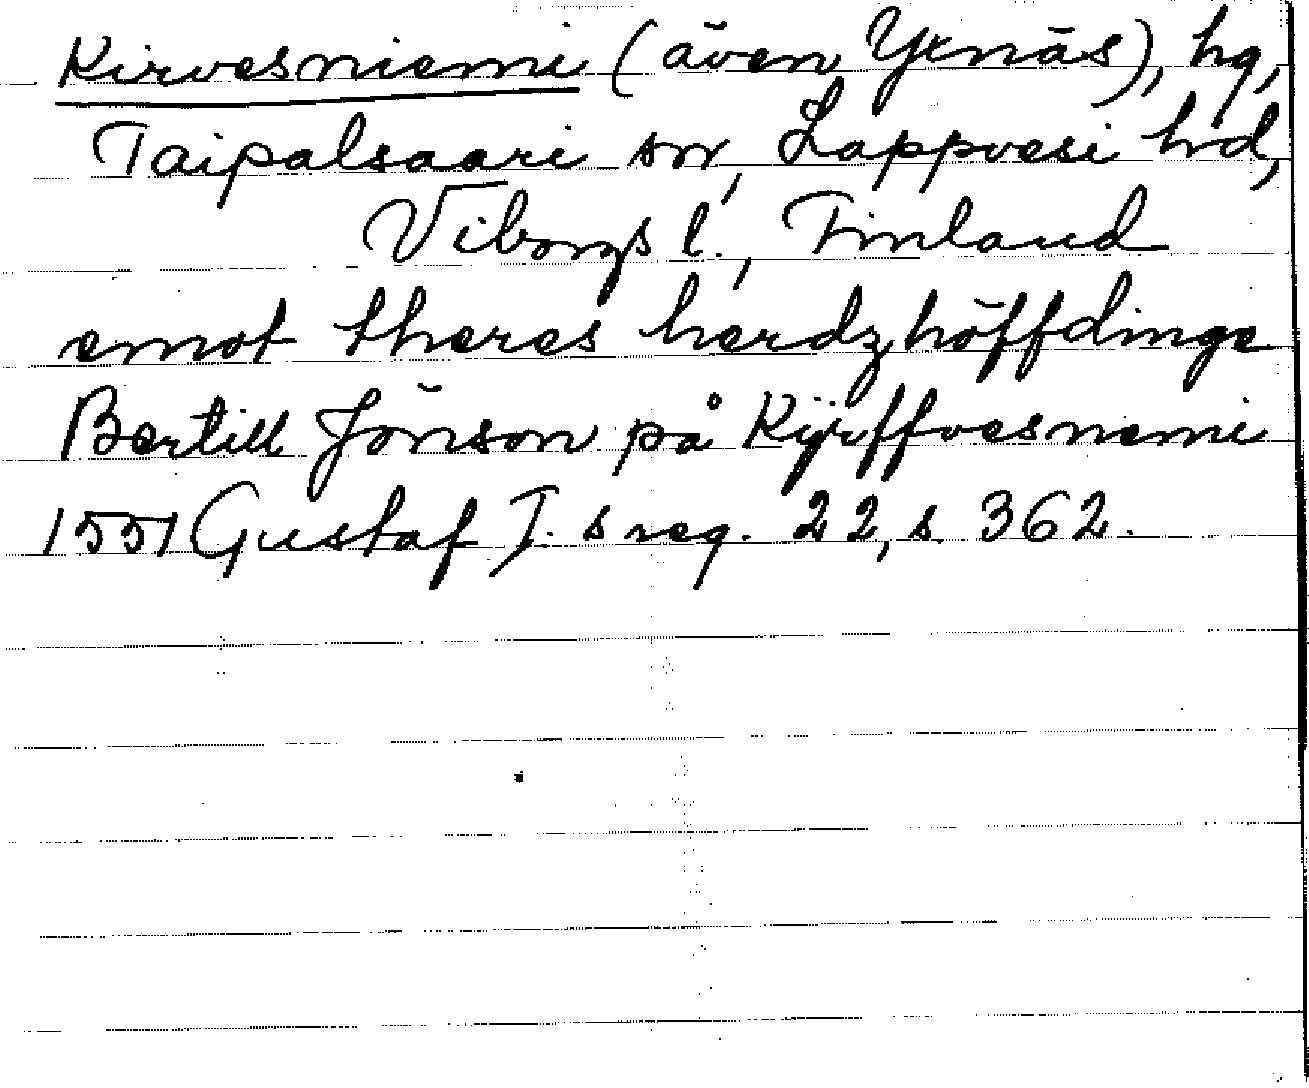 Kirvesniemi (även Yxnäs), hg,
Taipalsaari sn, Lappvesi hd,
Viborgs l., Finland
emot theres herdzhöffdinge
Bertill Jönson på Kijrffvesnemi
1551 Gustaf I. s reg. 22, s. 362.